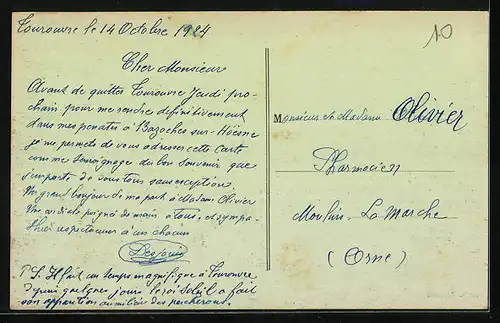 Tourouvre le 14 Octobre 1924
10
Cher Monsieur
Avant de quitter Tourouvre Jeudi pro-
chain pour me rendre definitivement
dans mes penates à Bazoches sur-Hoesne
je me permets de vous adresser cette Carte
comme temoignage du bon souvenir que
j'emporte de vous tous sans exception.
Un grand bonjour de ma part à Madame Olivier
Une cordiale poignée de main a tous, et sympa-
thies respectueuses à un chacun
P.S. Il fait un temps magnifique à Tourouvre
depuis quelques jours le roi Soleil a fait
son apparition au milieu des
Monsieur et Madame Olivier
Pharmacien
Moulins La Marche
(Orne)